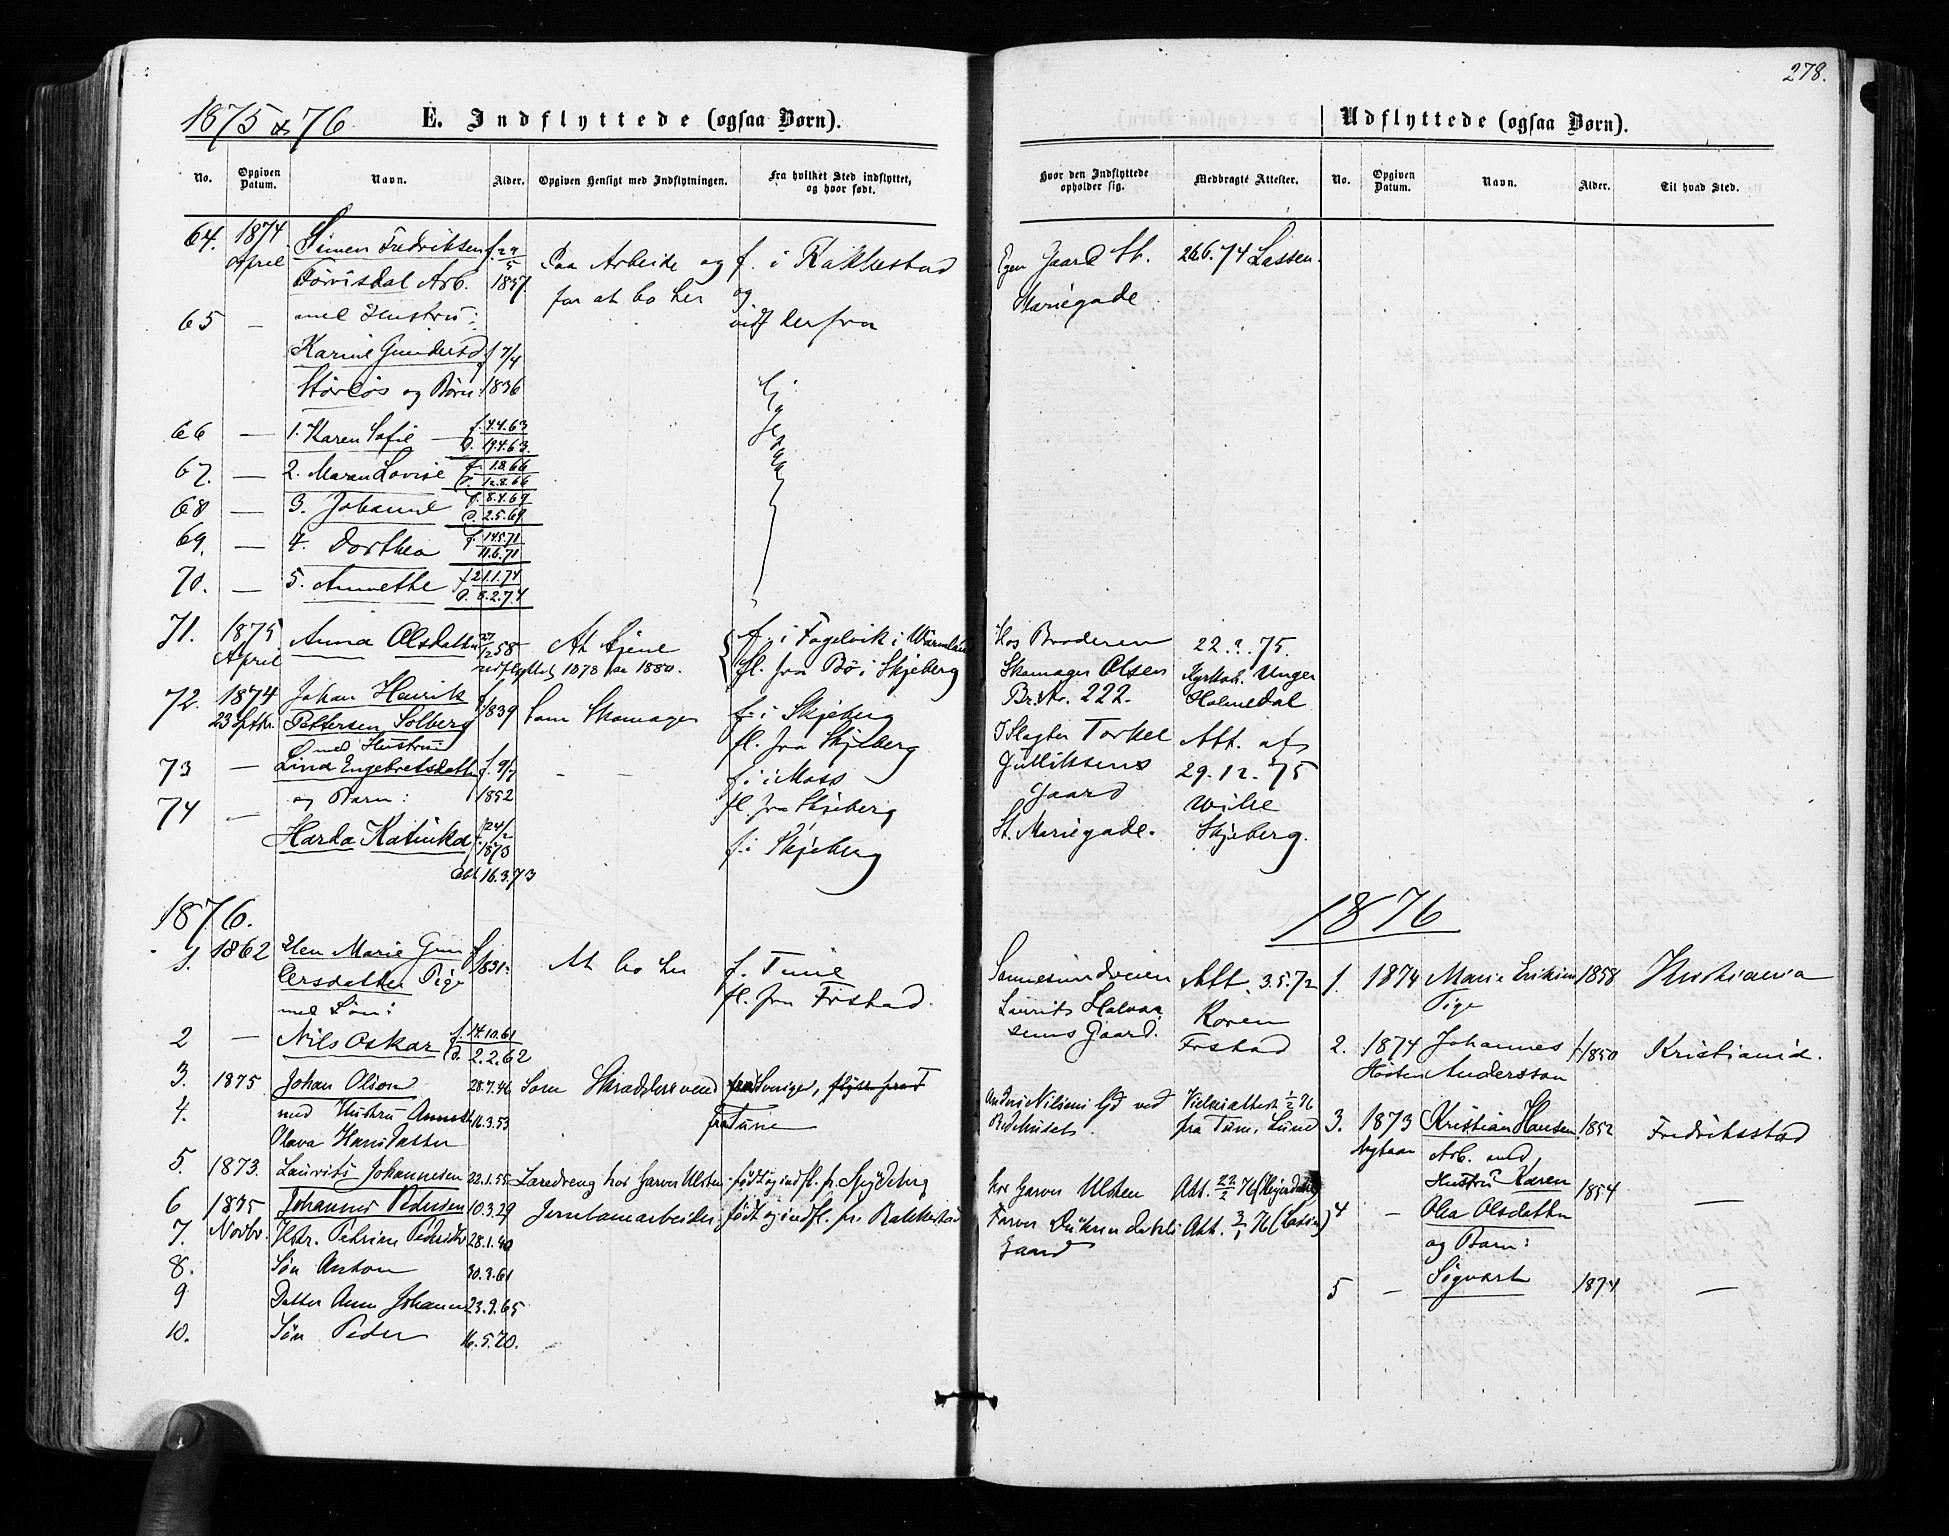 278.
1875 & 76
E. Indflyttede (ogsaa Børn).
Udflyttede (ogsaa Børn).
No. Opgiven Datum. Navn. Alder. Opgiven Hensigt med Indflytningen. Fra hvilket Sted indflyttet, og hvor født.
Hvor den Indflyttede opholder sig. Medbragte Attester. No. Opgiven Datum. Navn. Alder. Til hvad Sted.
64. 1874 April Simen Fredriksen
Arb. 1837. Paa Arbeide og for at bo her f. i Rakkestad og indf derfra
Egen Gaard St. Mariegade 26.6.74 Lassen.
65 — med Hustru:
Karine Gundersd. f 7/4 1836
og Børn:
66 — 1. Karen Sofie f. 4.4.63 D. 19.4.63.
67. — 2. Maren Lovise f. 1.8.66 D. 12.8.66
68 — 3. Johanne f. 8.4.69 D. 2.5.69
69. — 4. Dorthea f. 14.5.71 11.6.71
70. — 5. Annethe f 21.1.74 D. 8.2.74
71. 1875 April Anna Olsdatter 58 At tjene
udflyttet 1878 1880.
f. i Fogelvik i Wärmland
fl. fra Bø i Skjeberg
Hos Broderen Skomager Olsen Br. No. 222. 22.?.75. Kyrkoh. Unger Holmedal
72. 1874 23 Septbr. Johan Henrik Pettersen Solberg f 1839 Som Skomager f. i Skjeberg
fl. fra Skjeberg
I Slagter Torkel Gulliksens Gaard St. Mariegade. Att. af 29.12.75 Wille Skjeberg.
med Hustru
73 — Lina Engebretsdatter f. 9/7 1852 — — f. i Moss
fl. fra Skjeberg
og Barn:
74 — Harda Katinka f. 24/2 1873 døbt 16.3.73 f. i Skjeberg
1876.
1. 1862 Elen Marie Gundersdatter Pige f 1831. At bo her f. Tune
fl. fra Frstad.
Sannesundveien Laurits Halvorsens Gaard. Att. 3.5.72 Koren Frstad
med Søn:
2 — Nils Oskar f. 14.10.61 D. 2.2.62
3. 1875 Johan Olson 28.7.46 Som Skræddersvend fra Sverige, flyttet fra T
fra Tune
Anders Nilsens Gd ved Vielseattest 1/2 76 fra Tune, Lund
4. med Hustru Annette 16.3.53
Olava Hansdatter
5. 1873. Laurits Johannesen 22.1.55 Læredreng hos Garver Ulsten født og indfl. fr. Spydeberg
hos Garver Ulsten Att. 22/2 76
6 1875 Novbr. Johannes Pedersen 10.3.29 Jernbanearbeider født og indfl. fr. Rakkestad
Farver Gaard Att. 3/1 76 (Lassen)
7. Hstr. Petrine 28.1.40
8. Søn Anton 30.3.61
9 Datter Anne Johanne 23.9.65
10. Søn Peder 16.5.70.
1876
1. 1874 Marie Eriksen Pige 1858 Kristiania
2. 1874 Høsten Johannes Andersson f. 1850 Kristiania.
3. 1873 Nytaar Kristian Hansen 1852 Fredriksstad
Arb. med
4 — Hustru Karen Olea Olsdatter 1854 —
og Barn:
5 — Sigvart 1874 —